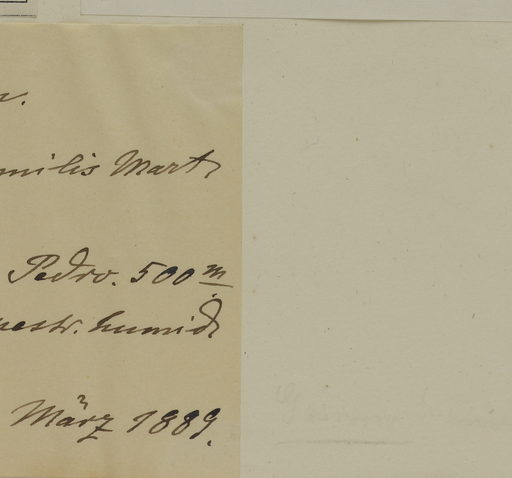 n.
milis Mart.
Pedro. 500 m
pestr. humid.
März 1889.